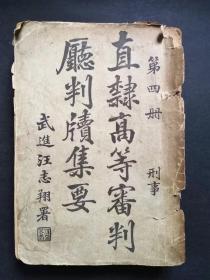 第四册 刑事
直隸高等審判
廳判牘集要
武進汪志翔署